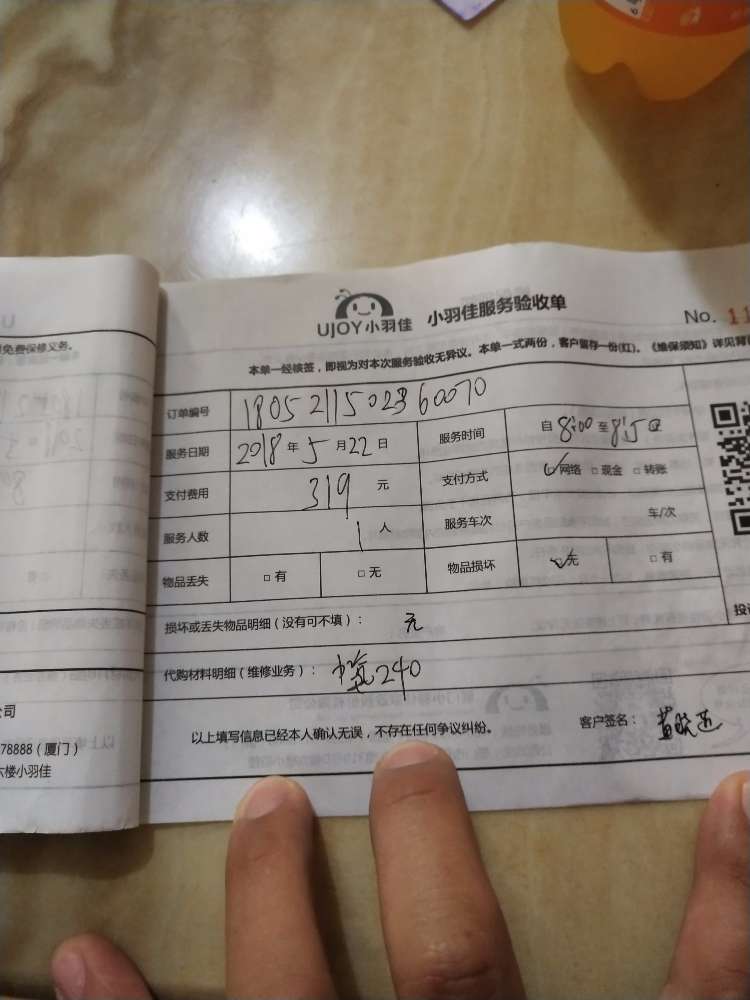 免费保修义务。
UJOY小羽佳 小羽佳服务验收单
No. 11
本单一经核签，即视为对本次服务验收无异议。本单一式两份，客户留存一份(红)。《维保须知》详见背
订单编号 1805211502360070
服务日期 2018年5月22日 服务时间 自8:00至8:50
支付费用 319元 支付方式 ☑网络 □现金 □转账
服务人数 1人 服务车次 车/次
物品丢失 □有 □无 物品损坏 ☑无 □有
损坏或丢失物品明细（没有可不填）： 无
投
代购材料明细（维修业务）： 240
公司
以上填写信息已经本人确认无误，不存在任何争议纠纷。 客户签名：
78888（厦门）
六楼小羽佳